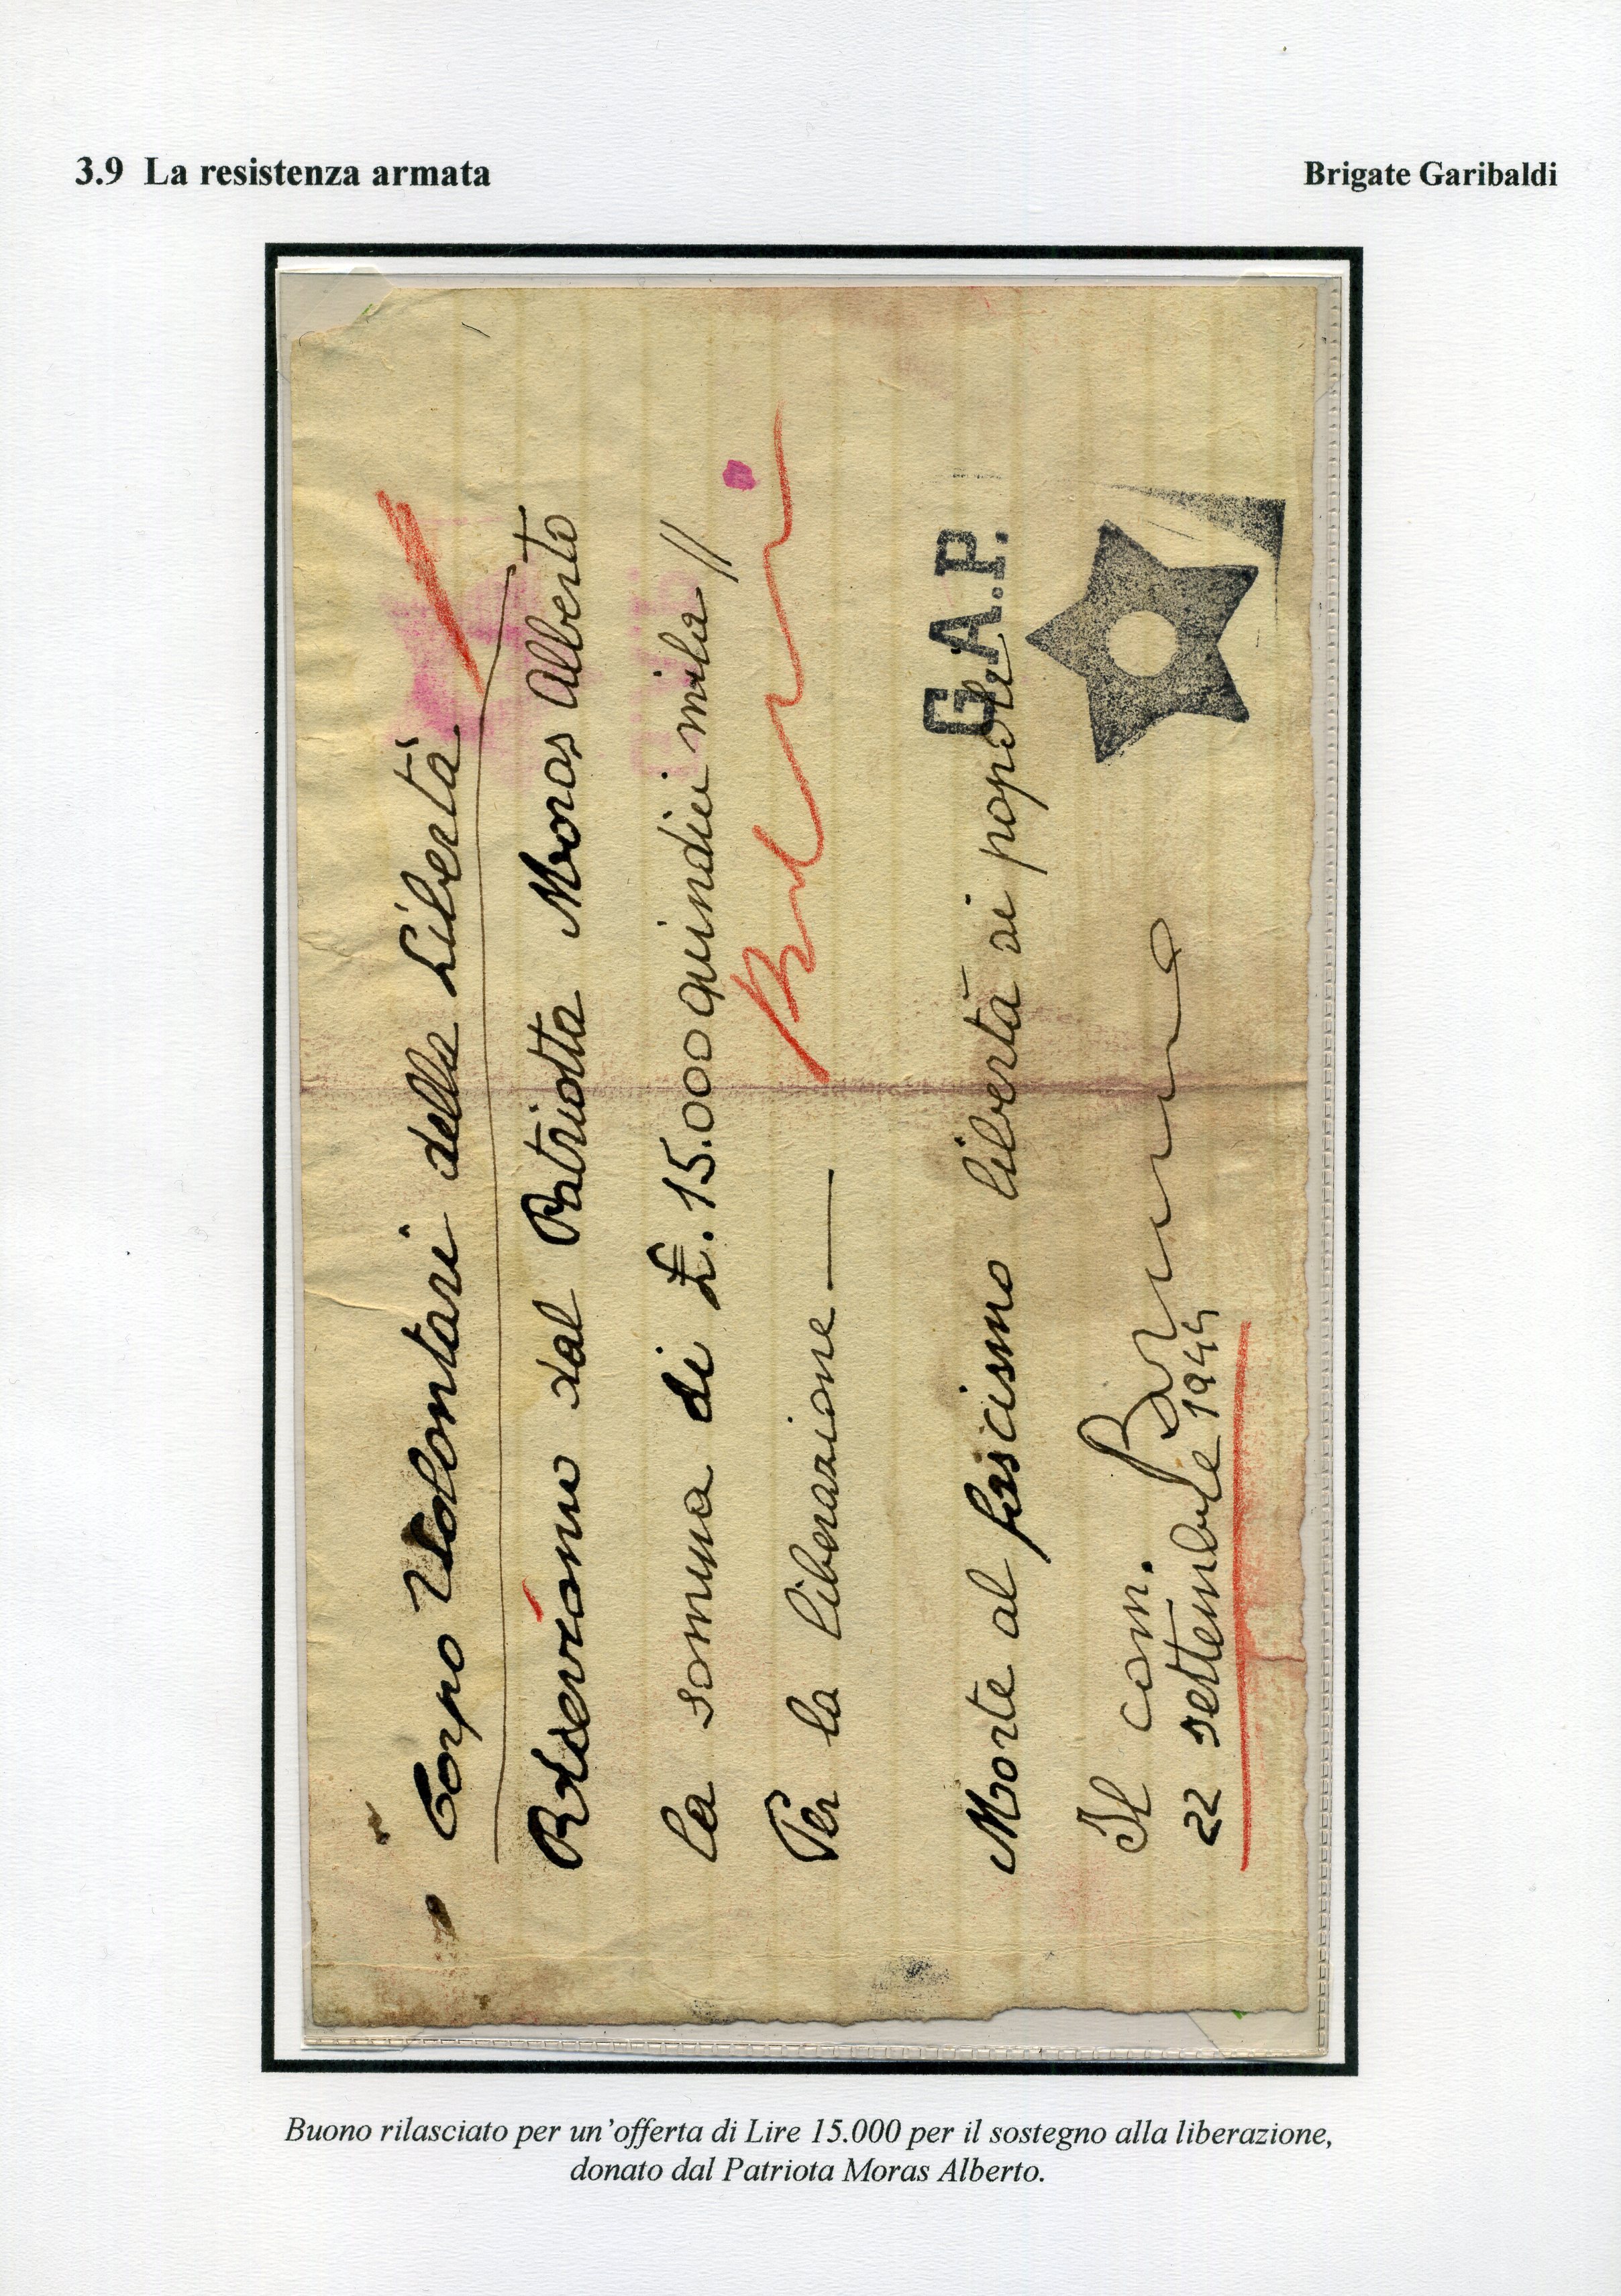 3.9 La resistenza armata
Brigate Garibaldi
Corpo Volontari della Libertà
Riceviamo dal Patriotta Moras Alberto
la somma di £. 15.000 quindici mila //
Per la liberazione —
G.A.P.
Morte al fascismo libertà ai popoli
Il com.
22 settembre 1944
Buono rilasciato per un'offerta di Lire 15.000 per il sostegno alla liberazione,
donato dal Patriota Moras Alberto.